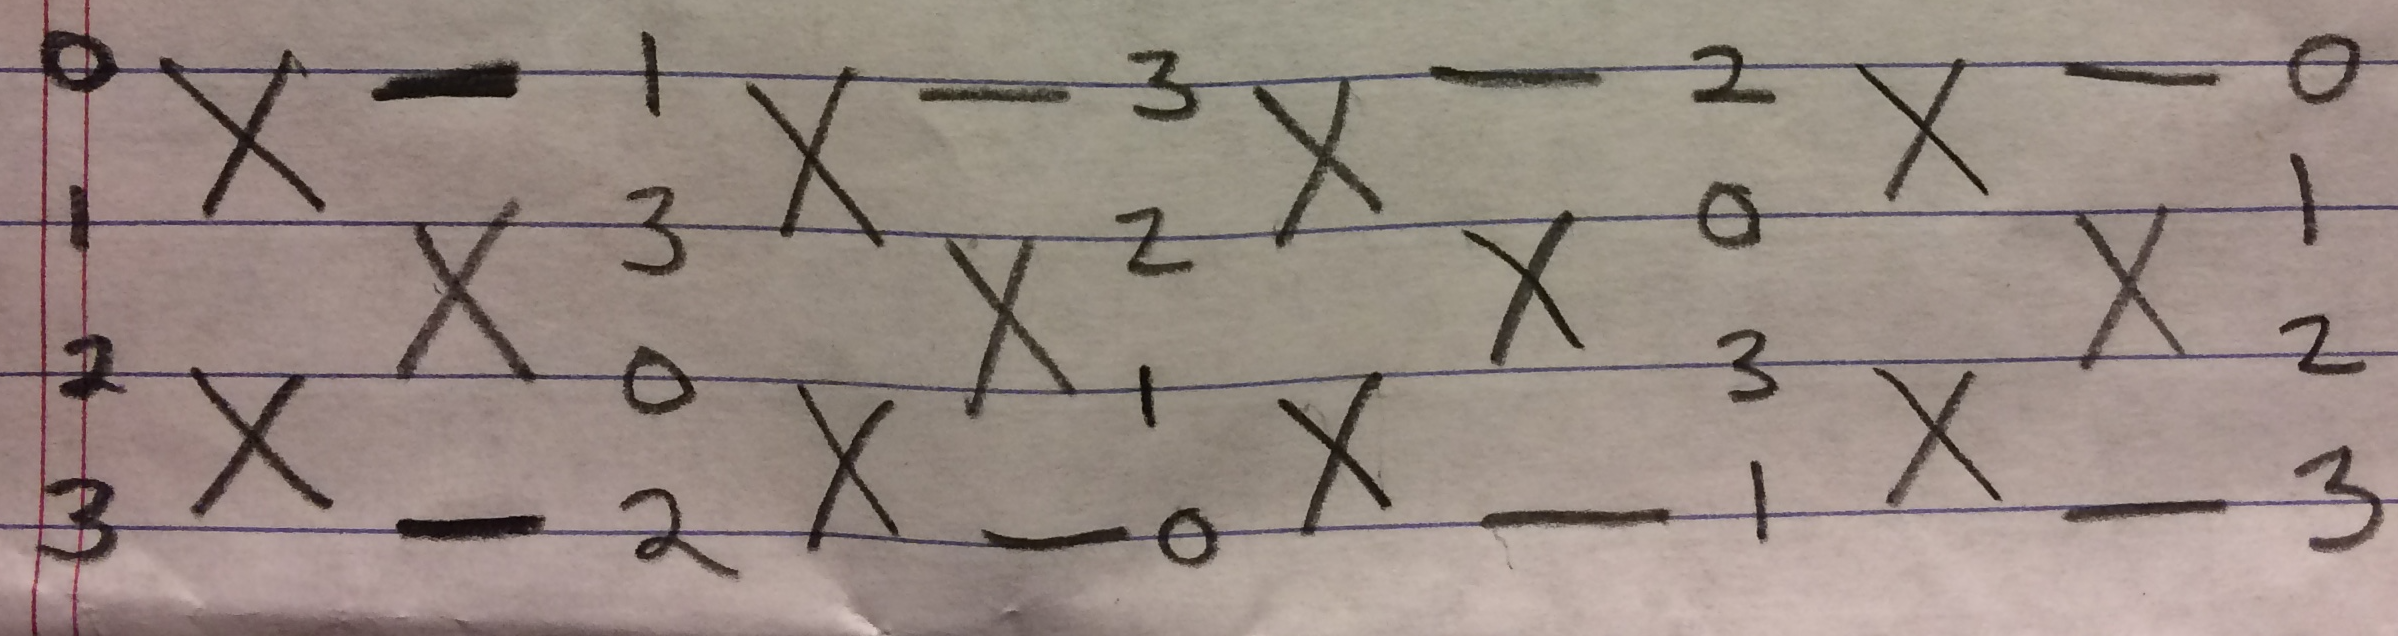 0 X — 1 X — 3 X — 2 X — 0
1 X 3 X 2 X 0 X 1
2 X 0 X 1 X 3 X 2
3 — 2 — 0 — 1 — 3